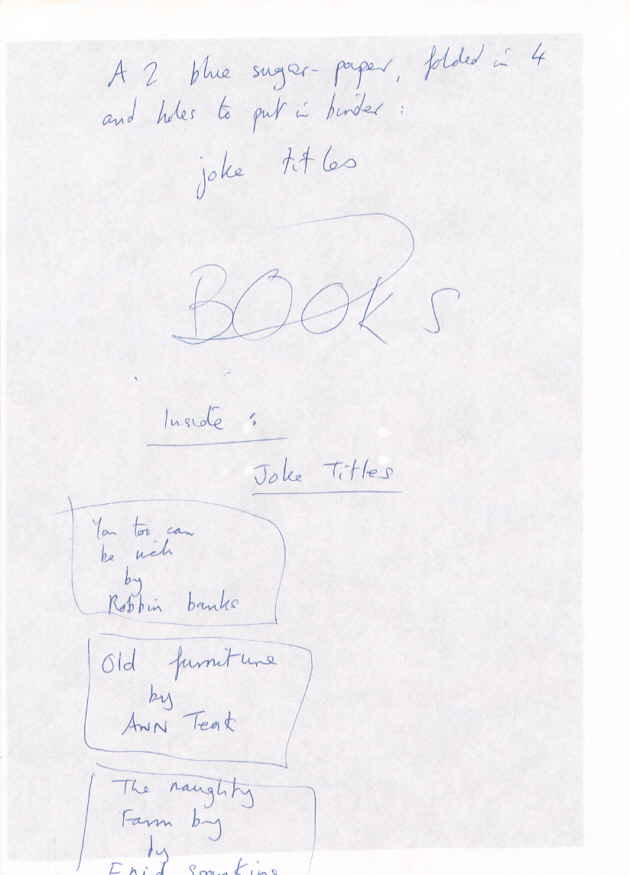 A 2 blue sugar-paper, folded in 4
and holes to put in binder :
joke titles
BOOKS
Inside :
Joke Titles
You too can
be rich
by
Robbin banks
Old furniture
by
ANN Teak
The naughty
Farm boy
by
Enid